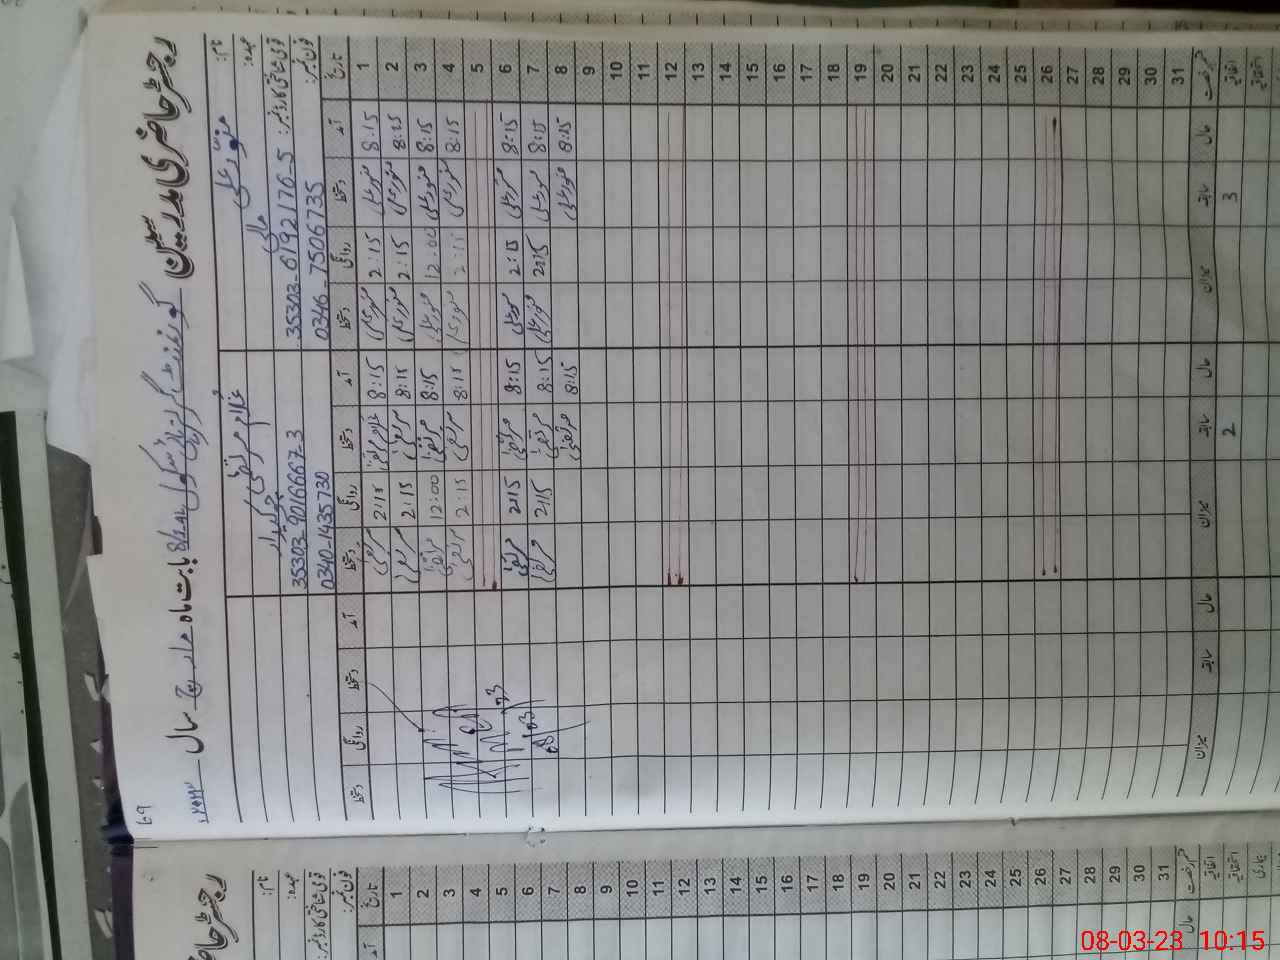 رجسٹر حاضری مدرسین گورنمنٹ گرلز ہائی سکول بابت ماہ مارچ سال ۲۰۲۳ء
69
نام: منور علی
غلام مرتضیٰ
عہدہ: مالی
چوکیدار
قومی شناختی کارڈ نمبر: 35303-6192176-5
35303-9016667-3
فون نمبر: 0346-7506735
0340-1435730
تاریخ آمد دستخط روانگی دستخط آمد دستخط روانگی دستخط آمد دستخط روانگی دستخط
1 8:15 منور علی 2:15 منور علی 8:15 غلام مرتضیٰ 2:15 مرتضیٰ
2 8:15 منور علی 2:15 منور علی 8:15 مرتضیٰ 2:15 مرتضیٰ
3 8:15 منور علی 12:00 منور علی 8:15 مرتضیٰ 12:00 مرتضیٰ
4 8:15 منور علی 2:15 منور علی 8:15 مرتضیٰ 2:15 مرتضیٰ
5
6 8:15 منور علی 2:15 منور علی 8:15 مرتضیٰ 2:15 مرتضیٰ
7 8:15 منور علی 2:15 منور علی 8:15 مرتضیٰ 2:15 مرتضیٰ
8 8:15 منور علی 8:15 مرتضیٰ
9
10
11
12
13
14
15
16
17
18
19
20
21
22
23
24
25
26
27
28
29
30
31
قسم رخصت حال سابقہ میزان حال سابقہ میزان حال سابقہ میزان
اتفاقیہ 3 2
استحقاقیہ
رجسٹر
نام:
عہدہ:
قومی شناختی کارڈ نمبر:
فون نمبر:
تاریخ آمد
1
2
3
4
5
6
7
8
9
10
11
12
13
14
15
16
17
18
19
20
21
22
23
24
25
26
27
28
29
30
31
قسم رخصت حال
اتفاقیہ
استحقاقیہ
بیماری
08-03-23 10:15